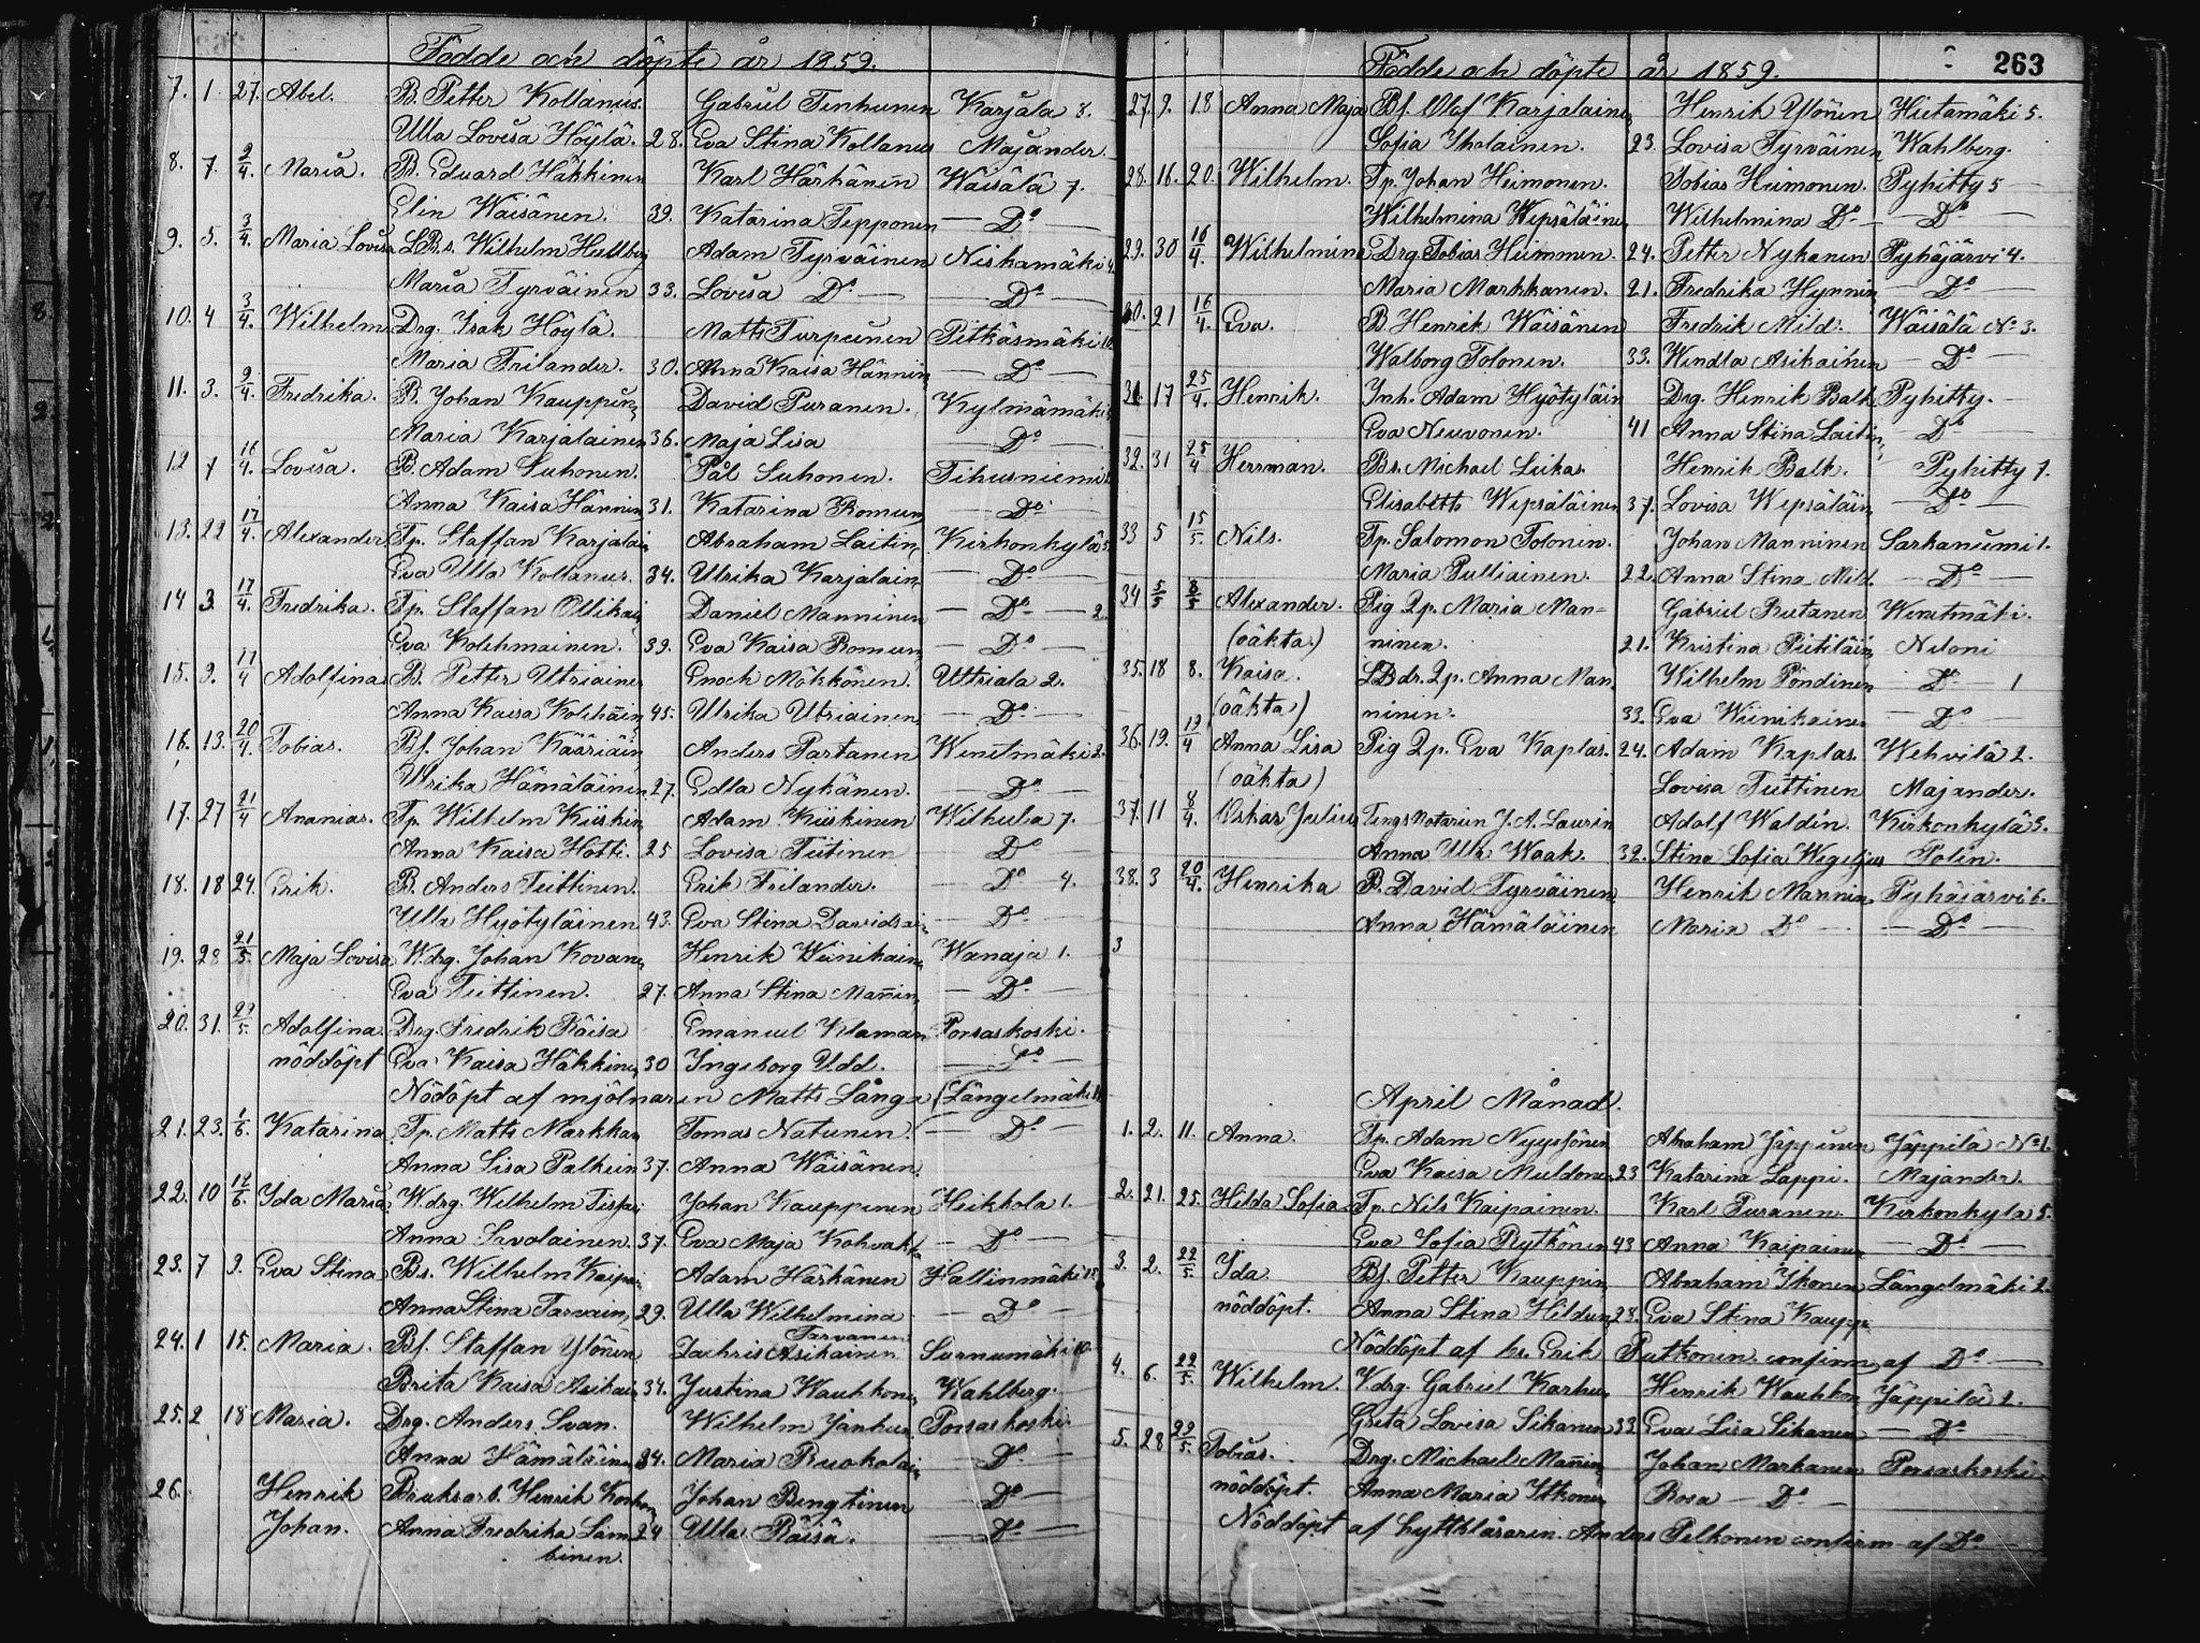 Födde och döpte år 1859.
7. 1. 27. Abel. B. Petter Kollanus. Gabriel Tenhunen Karjala 8.
Ulla Lovisa Höylä. 28. Eva Stina Kollanus Majander.
8. 7. 9/4. Maria. B. Eduard Häkkinen Karl Härkänen Wäisälä 7.
Elin Wäisänen. 39. Katarina Tepponen — Do —
9. 5. 3/4. Maria Lovisa LBs. Wilhelm Hellberg Adam Tyrväinen Niskamäki 4.
Maria Tyrväinen 33. Lovisa Do — — Do —
10. 4 3/4. Wilhelm Drg. Isak Höylä. Matts Turpeinen Pitkäsmäki 10.
Maria Frilander. 30. Anna Kaisa Hännin — Do —
11. 3. 9/4. Fredrika. B. Johan Kauppin David Puranen. Kylmämäki
Maria Karjalainen 36. Maja Lisa — Do —
12 7 16/4. Lovisa. B. Adam Suhonen. Pål Suhonen. Tihusniemi
Anna Kaisa Hännin 31. Katarina Romun — Do —
13. 22 17/4. Alexander. Tp. Staffan Karjalai Abraham Laitin Kirkonkylä 5.
Eva Ulla Kollanus. 34. Ulrika Karjalain — Do —
14 3. 17/4. Fredrika. Tp. Staffan Ollikai Daniel Manninen — Do — 2.
Eva Kolehmainen. 39. Eva Kaisa Romun — Do —
15. 9. 17/4 Adolfina B. Petter Utriainen Enoch Mökkönen. Uttriala 2.
Anna Kaisa Kolehäin 45. Ulrika Utriainen — Do —
16. 13. 20/4. Tobias. Bf. Johan Kääriäin Anders Partanen Wenetmäki 2.
Ulrika Hämäläinen 27. Edla Nykänen. — Do —
17. 27 21/4 Ananias. Tp. Wilhelm Kiiskin Adam Kiiskinen Wilhula 7.
Anna Kaisa Hotti. 25 Lovisa Tiitinen Do —
18. 18 24. Erik. B. Anders Teittinen. Erik Frilander. — Do 4.
Ulla Hyötyläinen 43. Eva Stina Davidsai — Do —
19. 28 21/5. Maja Lovisa W.drg. Johan Kovan Henrik Wiinikain Wanaja 1.
Eva Teittinen. 27. Anna Stina Mañin — Do —
20. 31. 29/5. Adolfina. Drg. Fredrik Räisä Emanuel Klaman Porsaskoski.
nöddöpt Eva Kaisa Häkkinen 30 Ingeborg Udd. — Do —
Nödöpt af mjölnaren Matts Långa (Längelmäki
21. 23. 1/6. Katarina Tp. Matts Markkan Tomas Natunen. — Do —
Anna Lisa Palkein 37. Anna Wäisänen.
22. 10 12/6. Ida Maria W.drg. Wilhelm Johan Kauppinen Heikkola 1.
Anna Savolainen. 37. Eva Maja Kohvak — Do —
23. 7 9. Eva Stina Bs. Wilhelm Kaipai Adam Härkänen Hallinmäki
Anna Stina Tarvain 29. Ulla Wilhelmina — Do —
Tarvanen
24. 1 15. Maria. Bf. Staffan Ylönen Zachris Asikainen Surnumäki 10.
Brita Kaisa Asikai 34. Justina Wauhkon Wahlberg.
25. 2 18 Maria. Drg. Anders Svan. Wilhelm Janhun Porsaskoski
Anna Hämäläinen 34. Maria Ruokolai — Do —
26. Henrik Bruksarb. Henrik Johan Bengtinen — Do —
Johan. Anna Fredrika Lam 24 Ulla Räisä. — Do —
binen.
Födde och döpte år 1859. 263
27. 9. 18 Anna Maja Bf. Olof Karjalainen Henrik Ylönen Hietamäki 5.
Sofia Iholainen. 23. Lovisa Tyrväinen Wahlberg.
28. 16. 20. Wilhelm. Tp. Johan Heimonen. Tobias Heimonen. Pyhitty 5
Wilhelmina Wepsäläinen Wilhelmina Do — — Do —
29. 30 16/4. Wilhelmina Drg. Tobias Heimmen. 24. Petter Nykanen Pyhäjärvi 4.
Maria Markkanen. 21. Fredrika Hynnin — Do —
30. 21 16/4. Eva. B. Henrik Wäisänen Fredrik Mild. Wäisälä No 3.
Walborg Tolonen. 33. Wendla Asikainen — Do —
31. 17 25/4. Henrik. Inh. Adam Hyötyläin Drg. Henrik Balk Pyhitty.
Eva Neuvonen. 41 Anna Stina Laitin — Do —
32. 31 25/4 Herrman. Bs. Michael Leikas. Henrik Balk. Pyhitty 7.
Elisabeth Wepsäläinen 37. Lovisa Wepsäläin — Do —
33 5 15/5. Nils. Tp. Salomon Tolonin. Johan Manninen Sarkaniemi 1.
Maria Pulliainen. 22. Anna Stina Mild. — Do —
34 5/5 8/5 Alexander. Pig. Qp. Maria Man- Gabriel Partanen Wenetmäki.
(oäkta) ninen. 21. Kristina Piitiläin Neloni
35. 18 8. Kaisa. LBdr. Qp. Anna Man Wilhelm Pöndinen — Do — 1
(oäkta) ninen. 33. Eva Wiinikainen — Do —
36. 19. 19/4 Anna Lisa Pig Qp. Eva Kaplas. 24. Adam Kaplas. Wehvilä 2.
(oäkta) Lovisa Tiittinen Majander.
37. 11 8/4. Oskar Julius Tings Notarien J. A. Laurin Adolf Waldén. Kirkonkylä 3.
Anna Ulr. Waak. 32. Stina Sofia Wegelius Polén.
38. 3 20/4. Henrika B. David Tyrväinen Henrik Mannin Pyhäjärvi 6.
Anna Hämäläinen Maria Do — — Do —
3
April Månad.
1. 2. 11. Anna. Tp. Adam Nyyssönen Abraham Jäppinen Jäppilä No 1.
Eva Kaisa Muldonen 23 Katarina Lappi. Majander.
2. 21. 25. Hilda Sofia Tp. Nils Kaipainen. Karl Puranen. Kirkonkyla 5.
Eva Sofia Rytkönen 43 Anna Kaipainen — Do —
3. 2. 22/5. Ida Bf. Petter Kauppin Abraham Ikonen Längelmäki 2.
nöddöpt. Anna Stina Hildun 28. Eva Stina Kaupp
Nöddöpt af br. Erik Putkonen. confirm af Do —
4. 6. 22/5. Wilhelm. V.drg. Gabriel Karhun Henrik Wauhkon Jäppilä 2.
Greta Lovisa Sikanen 33. Eva Lisa Sikanen — Do —
5. 28 29/5. Tobias. Drg. Michael Mañin Johan Markanen Porsaskoski
nöddöpt. Anna Maria Itkonen Rosa — Do —
Nöddöpt af hyttklåsaren Anders Pelkonen confirm af Do